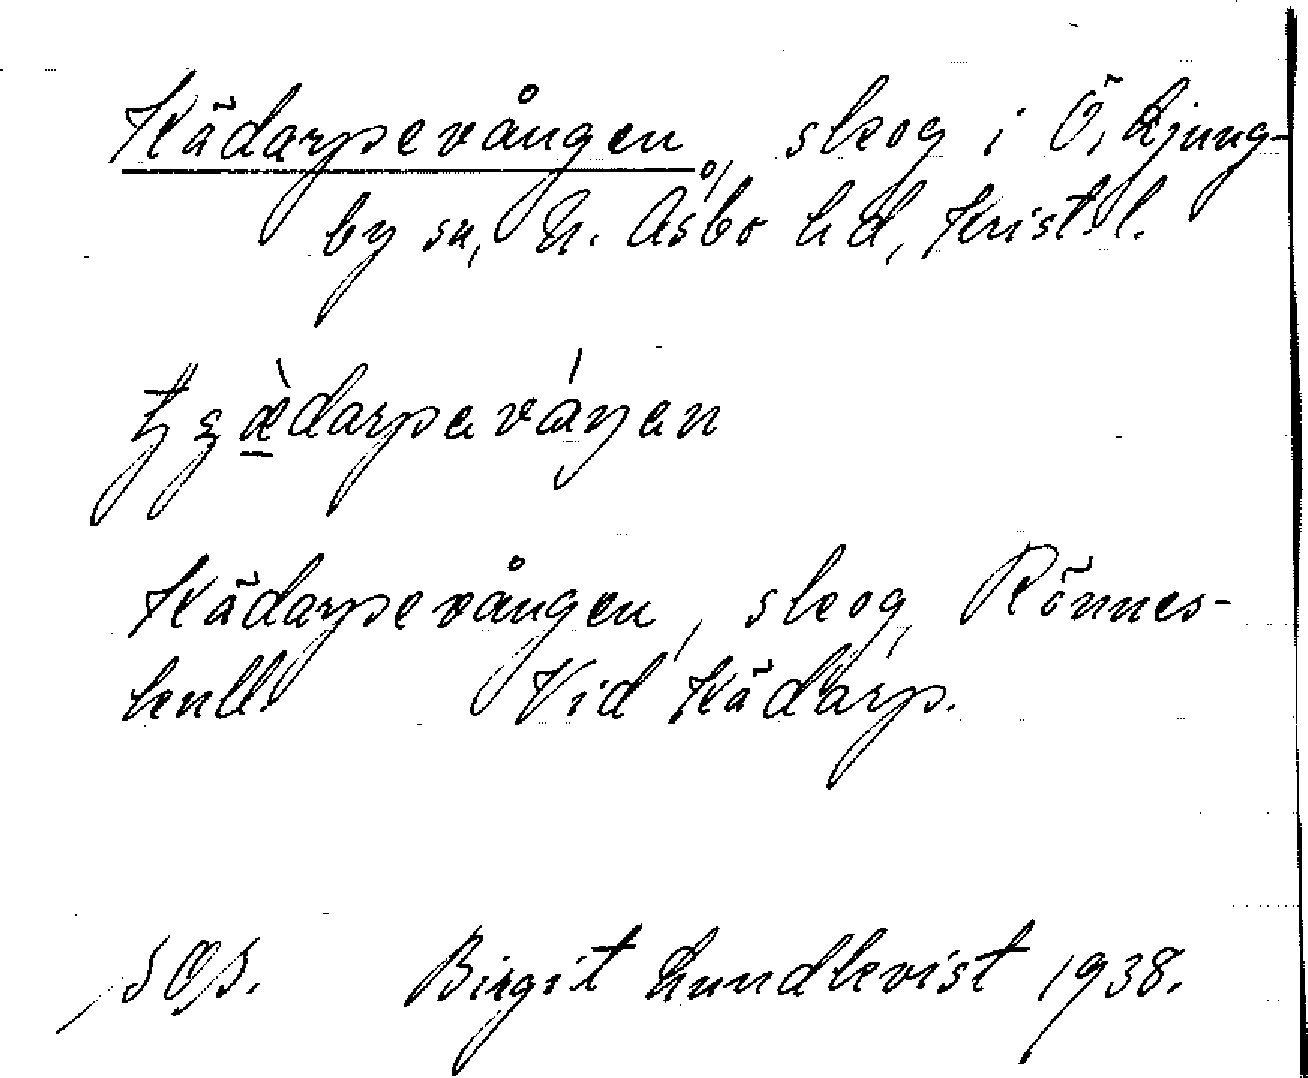 Kädarpevången, skog i Ö, Ljung-
by sn, N. Åsbo hd, Krist. l.
Kädarpevången, skog, Rönnes-
kull Vid Kädarp.
SOS. Birgit Lundkvist 1938.